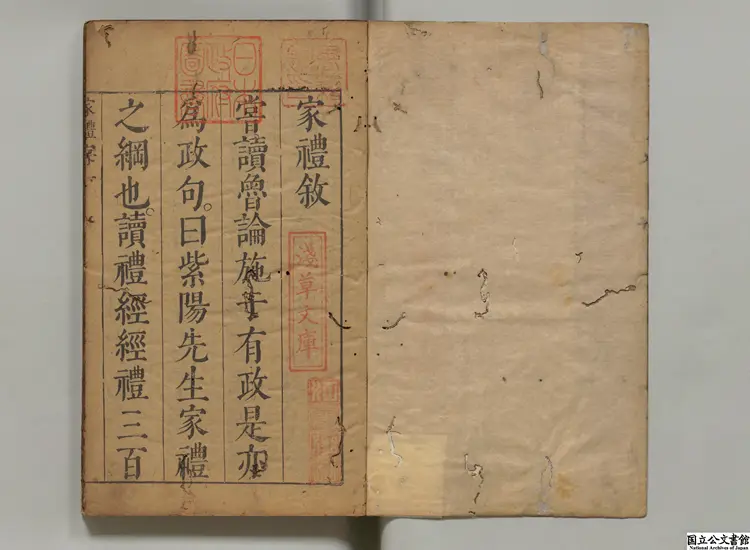 家禮敘
嘗讀魯論施于有政是亦
爲政句。曰紫陽先生家禮
之綱也。讀禮經經禮三百
家禮
淺草文庫
国立公文書館
National Archives of Japan